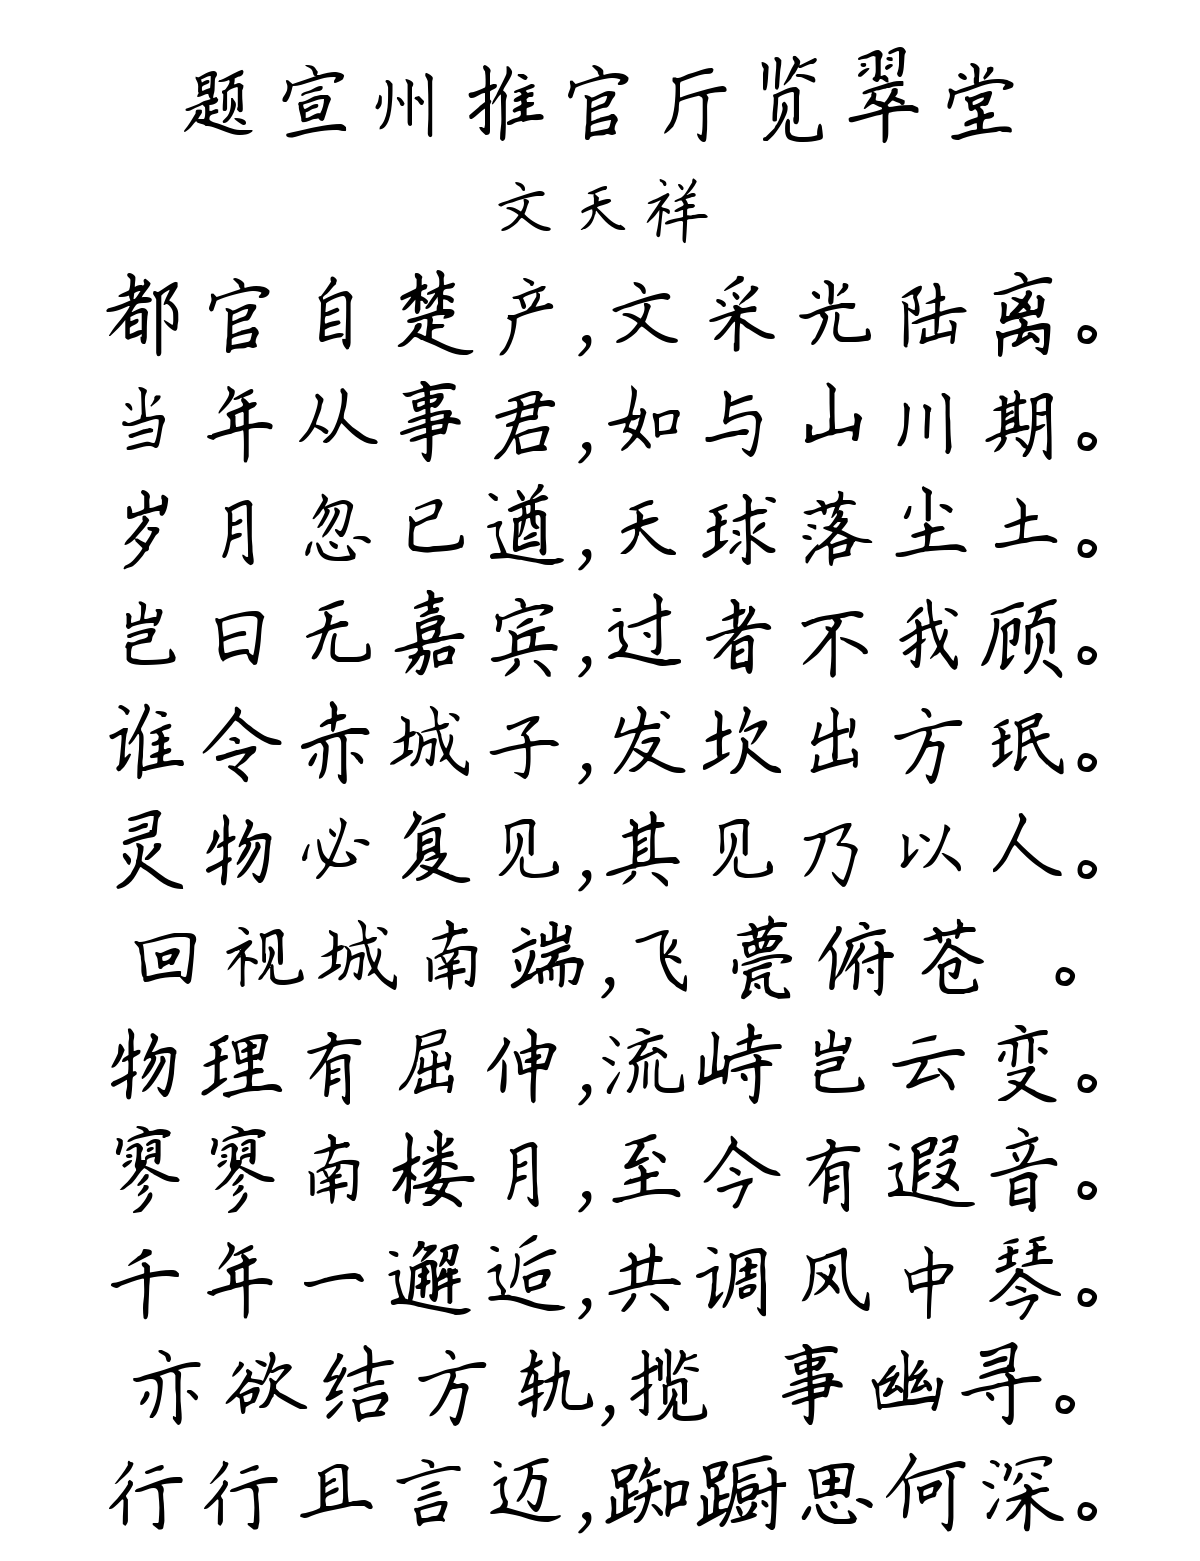 题宣州推官厅览翠堂
文天祥
都官自楚产,文采光陆离。
当年从事君,如与山川期。
岁月忽已遒,天球落尘土。
岂曰无嘉宾,过者不我顾。
谁令赤城子,发坎出方珉。
灵物必复见,其见乃以人。
回视城南端,飞甍俯苍 。
物理有屈伸,流峙岂云变。
寥寥南楼月,至今有遐音。
千年一邂逅,共调风中琴。
亦欲结方轨,揽 事幽寻。
行行且言迈,踟蹰思何深。